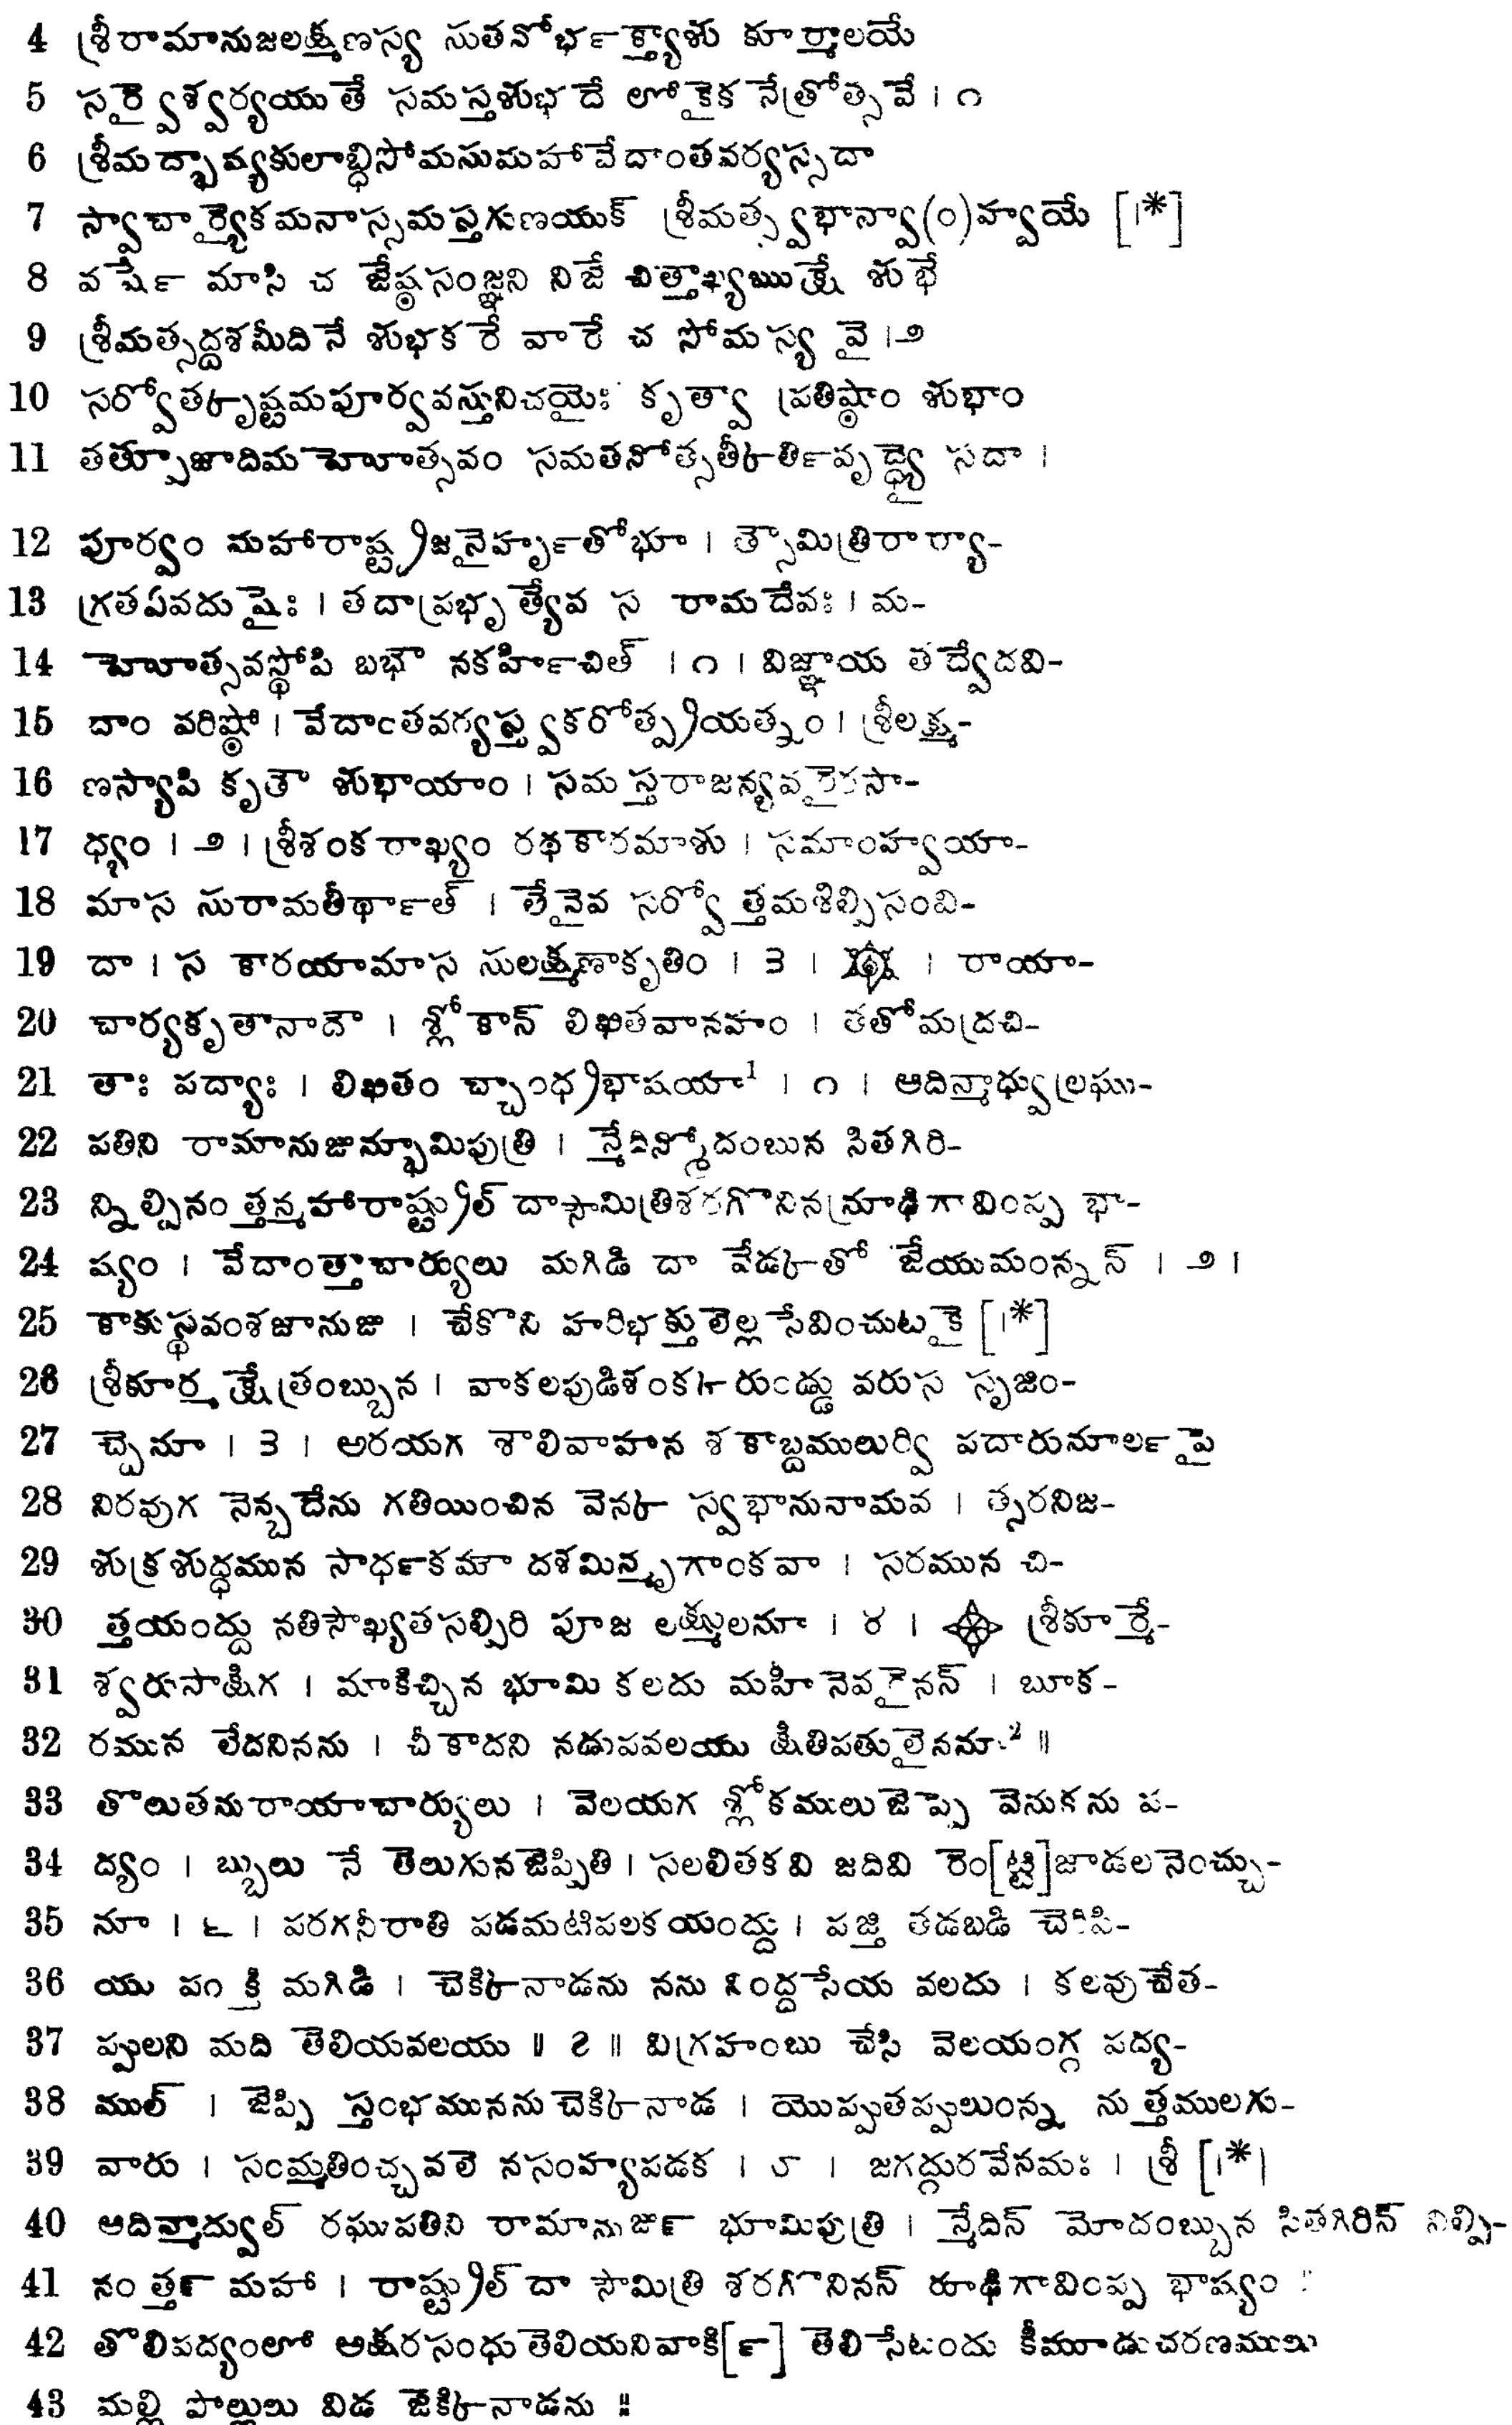 4 శ్రీరామానుజలక్ష్మణస్య సుతనోర్భక్త్యాశు కూర్మాలయే
5 సర్వైశ్వర్యయుతే సమస్తశుభదే లోకైకనేత్రోత్సవే । ౧
6 శ్రీమద్భావ్యకులాబ్ధిసోమసుమహావేదాంతవర్యస్సదా
7 స్వాచార్యైకమనాస్సమస్తగుణయుక్ శ్రీమత్స్వభాన్వా(ం)హ్వయే [।*]
8 వర్షే మాసి చ జేష్ఠసంజ్ఞని నిజే చిత్తాఖ్యఋక్షే శుభే
9 శ్రీమత్సద్దశమీదినే శుభకరే వారే చ సోమస్య వై ।౨
10 సర్వోత్కృష్టమపూర్వవస్తునిచయైః కృత్వా ప్రతిష్ఠాం శుభాం
11 తత్పూజాదిమహోత్సవం సమతనోత్సత్కీర్తివృద్ధ్యై సదా ।
12 పూర్వం మహారాష్ట్రజనైర్హృతోభూ । త్సౌమిత్రిరాగ్యా-
13 గ్రతఏవదుష్టైః । తదాప్రభృత్యేవ స రామదేవః । మ-
14 హోత్సవస్థోపి బభౌ నకర్హిచిత్ । ౧ । విజ్ఞాయ తద్వేదవి-
15 దాం వరిష్ఠో । వేదాఁతవర్యస్త్వకరోత్ప్రయత్నం । శ్రీలక్ష్మ-
16 ణస్యాపి కృతౌ శుభాయాం । సమస్తరాజన్యవరైకసా-
17 ధ్యం । ౨ । శ్రీశంకరాఖ్యం రథకారమాశు । సమాంహ్వయా-
18 మాస సురామతీర్థాత్ । తేనైవ సర్వోత్తమశిల్పిసంవి-
19 దా । స కారయామాస సులక్ష్మణాకృతిం । ౩ । । రాయా-
20 చార్యకృతానాదౌ । శ్లోకాన్ లిఖితవానహం । తతోమద్రచి-
21 తాః పద్యాః । లిఖితం చ్చాంధ్రభాషయా¹ । ౧ । ఆదిన్మాధ్వుల్రఘు-
22 పతిని రామానుజున్భూమిపుత్రి । న్మేదిన్మోదంబున సితగిరి-
23 న్నిల్పినం త్తన్మహారాష్ట్రుల్ దాసౌమిత్రిశరగొనినన్రూఢిగావింప్ప భా-
24 ష్యం । వేదాంత్తాచార్యులు మగిడి దా వేడ్కతో జేయుమంన్నన్ । ౨ ।
25 కాకుస్థవంశజానుజు । చేకొని హరిభక్తులెల్ల సేవించుటకై [।*]
26 శ్రీకూర్మక్షేత్రంబ్బున । వాకలపుడిశంకర్రుండ్డు వరుస సృజిం-
27 చ్చెనూ । ౩ । అరయగ శాలివాహాన శకాబ్దములుర్వి పదారునూర్లపై
28 నిరవుగ నెన్బదేను గతియించిన వెన్క స్వభానునామవ । త్సరనిజ-
29 శుక్రశుద్ధమున సార్ధకమౌ దశమిన్మృగాంకవా । సరమున చి-
30 త్తయంద్దు నతిసౌఖ్యతసల్పిరి పూజ లక్ష్ములనూ । ౪ । శ్రీకూర్మే-
31 శ్వరుసాక్షిగ । మాకిచ్చిన భూమి కలదు మహినెవరైనన్ । బూక-
32 రమున లేదనినను । చీకాదని నడుపవలయు క్షితిపతులైననూ² ॥
33 తొలుతనురాయాచార్యులు । వెలయగ శ్లోకములుజెప్పె వెనుకను ప-
34 ద్యం । బ్బులు నే తెలుగునజెప్పితి । సలలితకవి జదివి రెం[ట్టి]జాడలనెంచ్చు-
35 నూ । ౬ । పరగనీరాతి పడమటిపలకయంద్దు । పఙ్తి తడబడి చెరిపి-
36 యు పం క్తి మగిడి । చెక్కినాడను నను నింద్దసేయ వలదు । కలవుచేత-
37 ప్పులని మది తెలియవలయు ॥ ౭ ॥ విగ్రహంబు చేసి వెలయంగ్గ పద్య-
38 ముల్ । జెప్పి స్తంభముననుచెక్కినాడ । యొప్పుతప్పులుంన్న నుత్తములగు-
39 వారు । సంమ్మతించ్చవలె నసంహ్యపడక । ౮ । జగద్గురవేనమః । శ్రీ [।*]
40 ఆదిన్మాద్వుల్ రఘుపతిని రామానుజున్ భూమిపుత్రి । న్మేదిన్ మోదంబ్బున సితగిరిన్ నిల్పి-
41 నం త్తన్ మహా । రాష్ట్రుల్ దా సౌమిత్రి శరగొనినన్ రూఢిగావింప్ప భాష్యం ।
42 తొలిపద్యంలో అక్షరసంధుతెలియనివార్కి[ ] తెలిసేటందు కీమూడుచరణములు
43 మల్లి పొల్లులు విడ జెక్కినాడను ॥